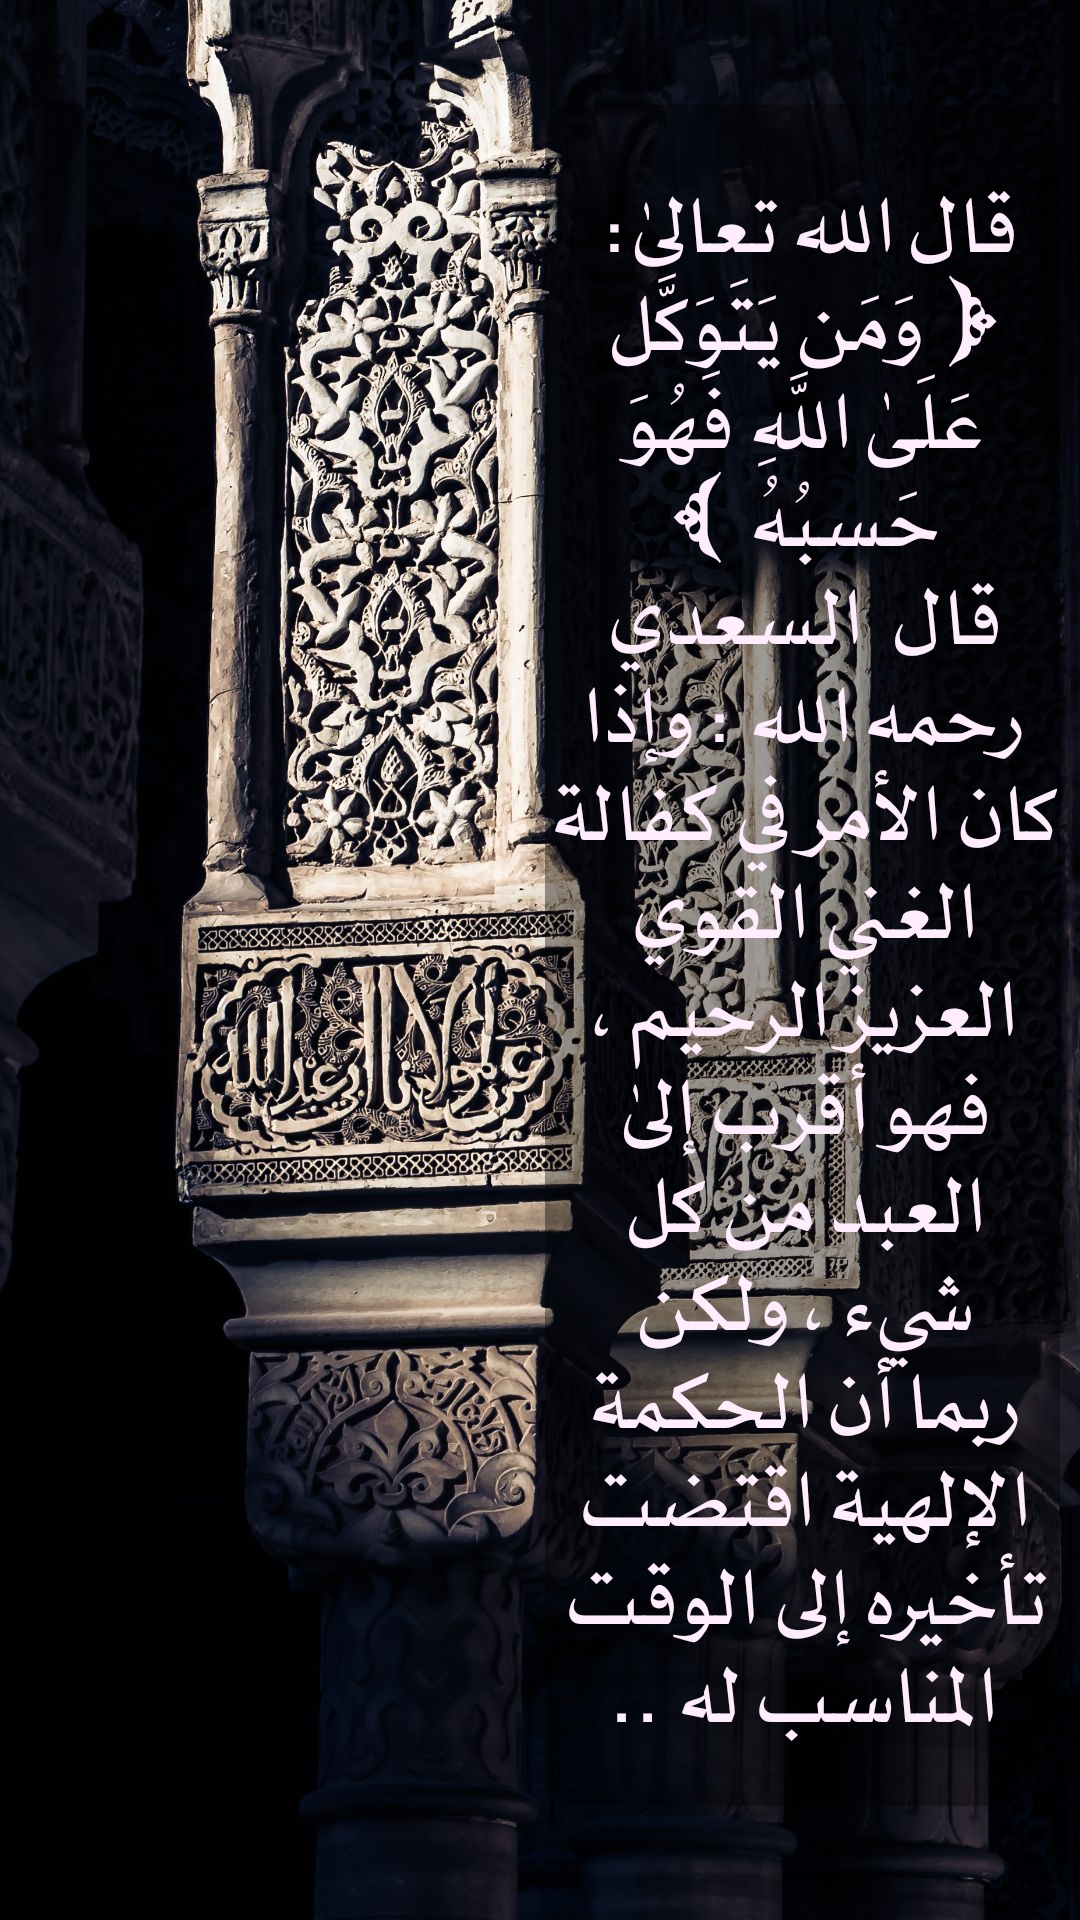 قال الله تعالىٰ:
﴿ وَمَن يَتَوَكَّل
عَلَىٰ اللَّهِ فَهُوَ
حَسبُهُ ﴾
قال السعدي
رحمه الله : وإذا
كان الأمر في كفالة
الغني القوي
العزيز الرحيم ،
فهو أقرب إلىٰ
العبد من كل
شيء ، ولكن
ربما أن الحكمة
الإلهية اقتضت
تأخيره إلى الوقت
المناسب له ..